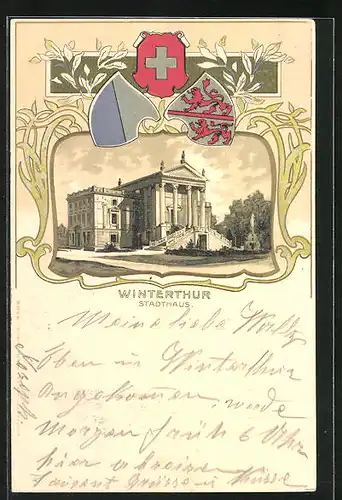 WINTERTHUR
STADTHAUS.
Meine liebe
Eben in Winterthur
Angekommen, werde
Morgen früh 6 Uhr
hier abreisen
tausend Grüsse u Küsse